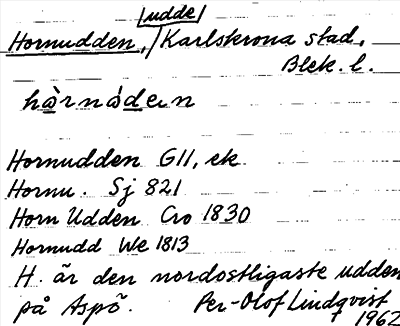 udde
Hornudden, Karlskrona stad,
Blek. l.
hårnúdern
Hornudden GII, ek.
Hornu. Sj 821
Horn Udden Cro 1830
Hornudd We 1813
H. är den nordostligaste udden
på Aspö. Per-Olof Lindqvist
1962